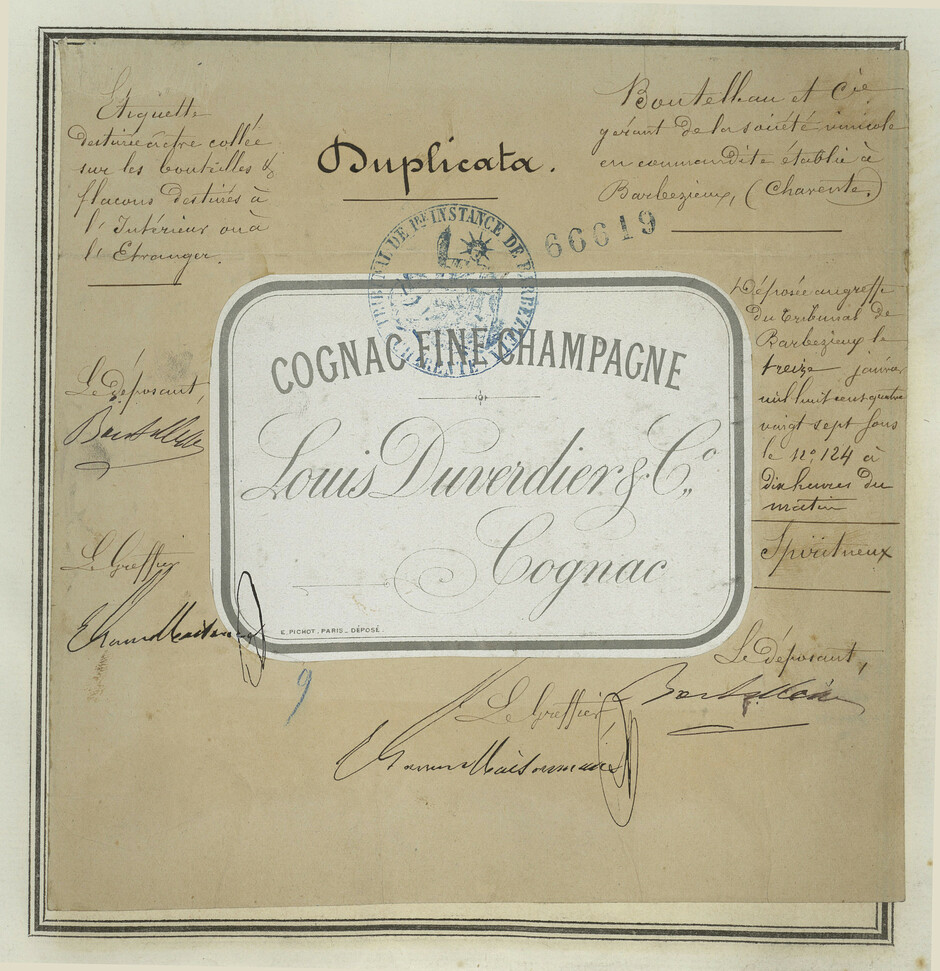 Etiquette
destinée à être collée
sur les bouteilles &
flacons destinés à
l'Intérieur ou à
l'Etranger.
Duplicata.
Boutelleau et Cie
gérant de la société vinicole
en commandite établie à
Barbezieux, (Charente.)
66619
TRIBUNAL DE 1re INSTANCE DE BARBEZIEUX
CHARENTE
Déposée au greffe
du Tribunal de
Barbezieux le
treize janvier
mil huit cent quatre
vingt sept sous
le no. 124 à
dix heures du
matin
Spiritueux
COGNAC FINE CHAMPAGNE
Louis Duverdier & Co.,
Cognac
E. PICHOT. PARIS_ DÉPOSÉ.
Le déposant,
Le Greffier
9
Le déposant,
Le Greffier